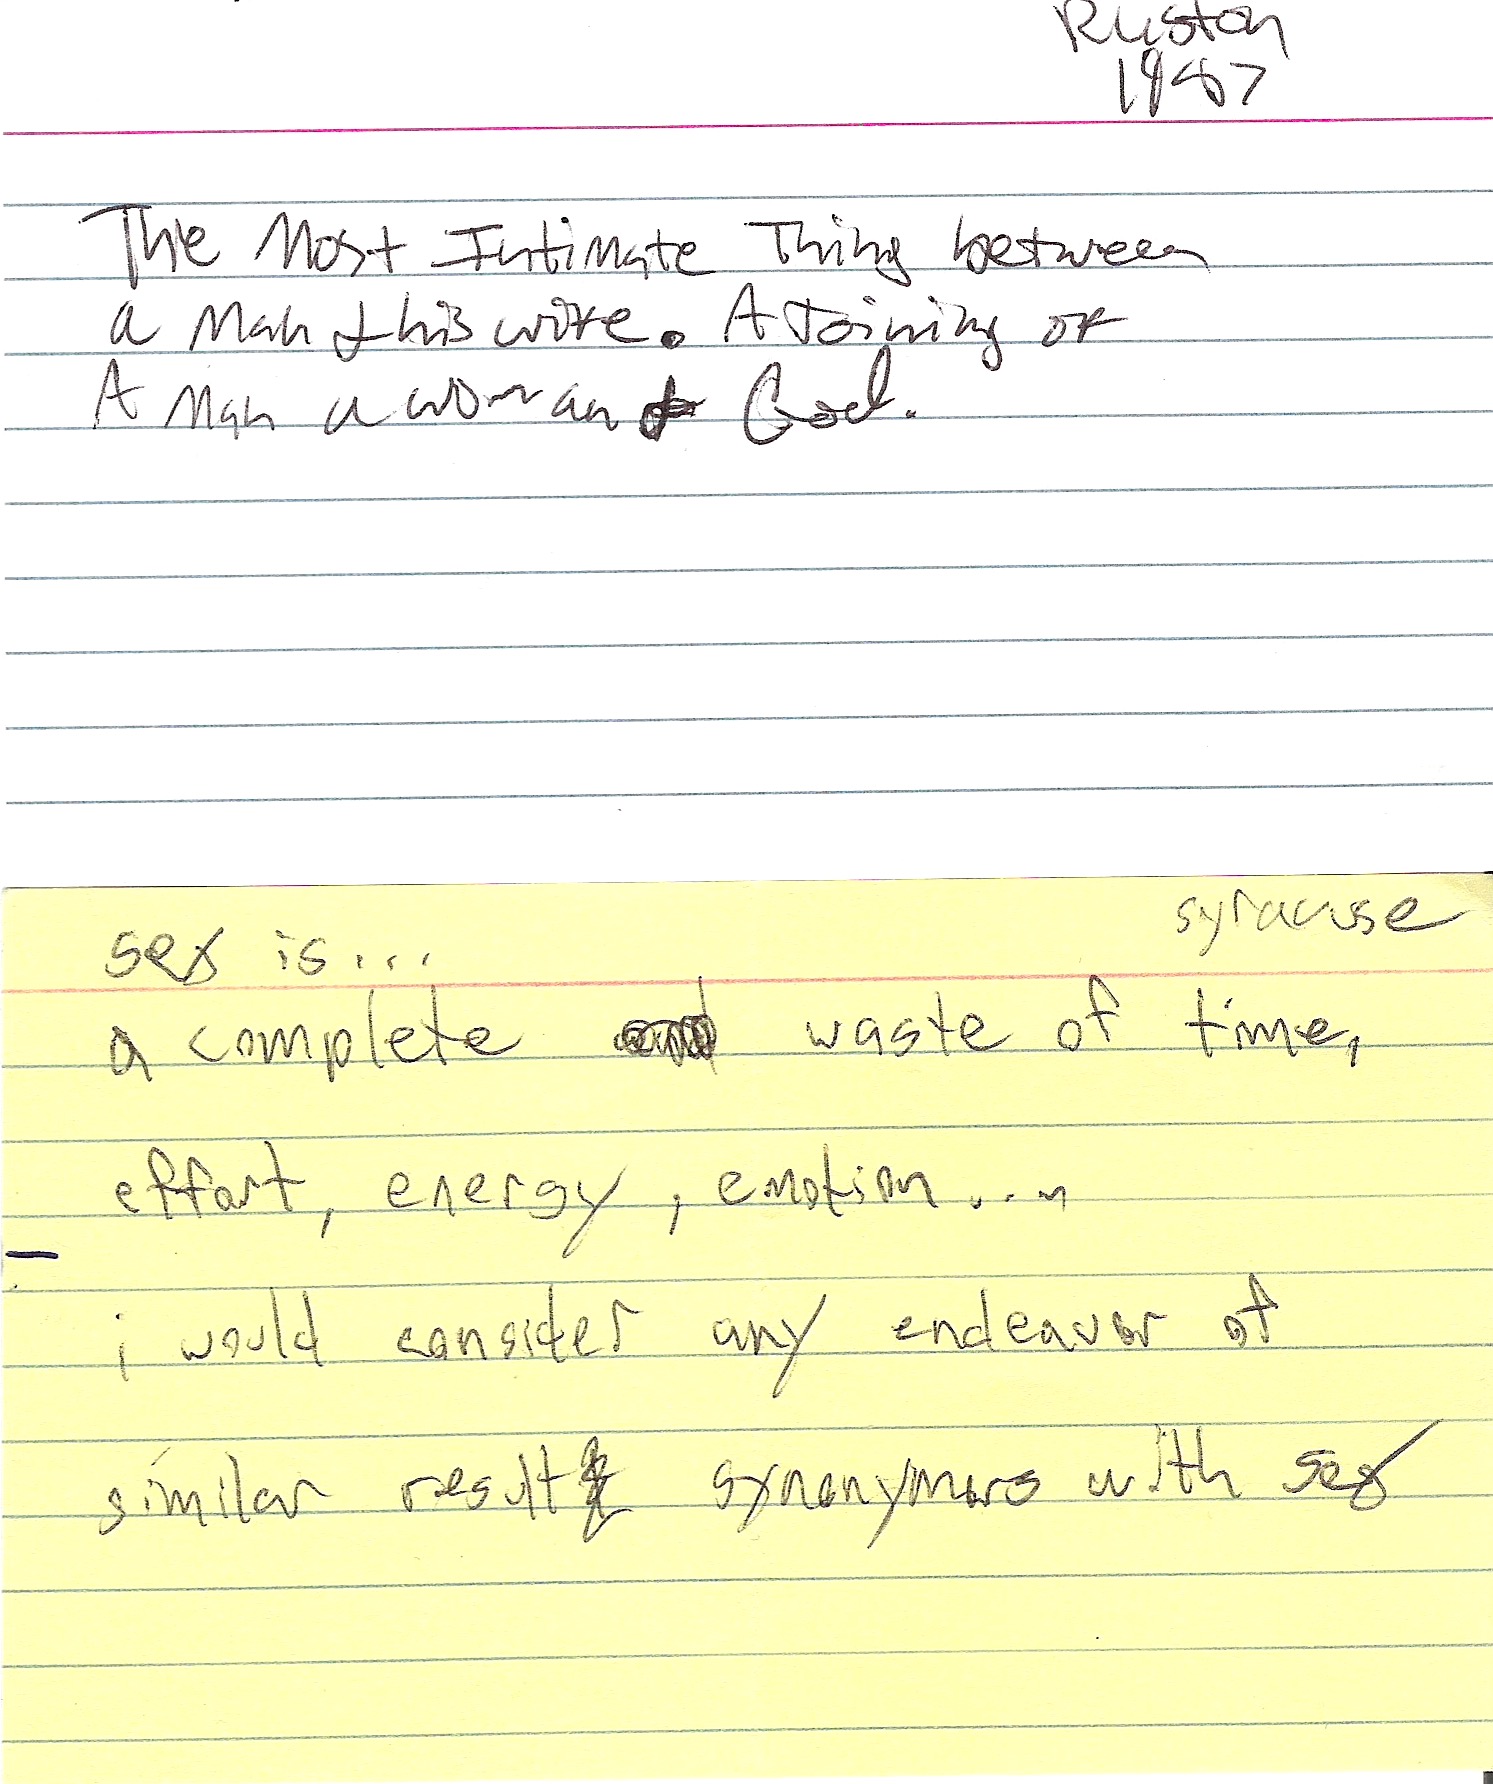 Ruston
1987
The Most Intimate Thing between
a Man & his wife. A Joining of
A Man a woman & God.
syracuse
sex is...
a complete waste of time,
effort, energy, emotion....
i would consider any endeavor of
similar result synonymous with sex